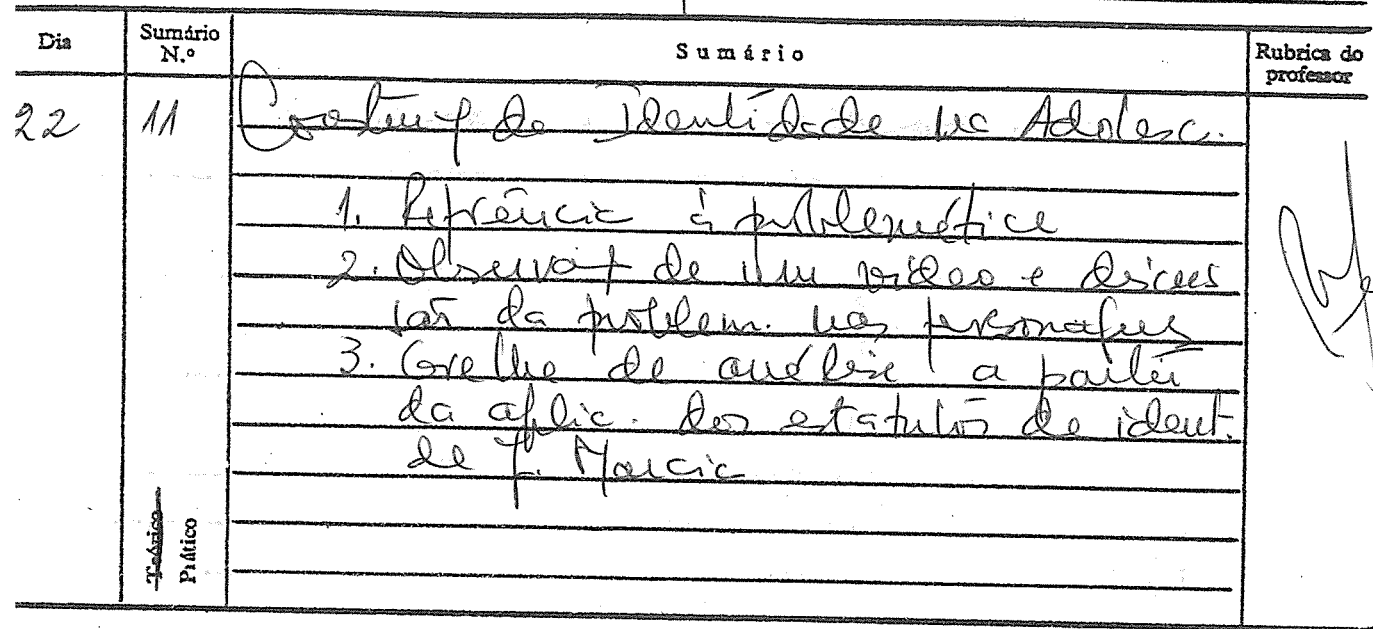 Dia Sumário N.º Sumário Rubrica do professor
22 11 Construç da Identidade na Adolesc.
1. Referência à problemática
2. Observaç de um vídeo e discus
são da problem. nas personagens
3. Grelha de análise a partir
da aplic. dos estatutos de ident.
de J. Marcia
Teórico
Prático